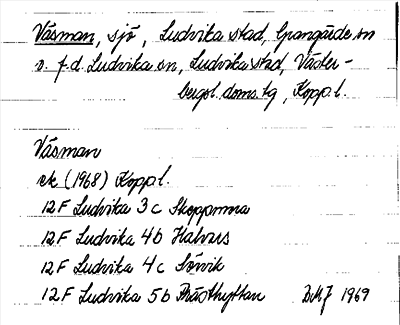 Väsman, sjö, Ludvika stad, Grangärde sn
o. f.d. Ludvika sn, Ludvika stad, Väster-
bergsl. doms.tg, Kopp.l.
Väsman
ek (1968) Kopp.l.
12F Ludvika 3c Skoppmora
12F Ludvika 4b Halvars
12F Ludvika 4c Sörvik
12F Ludvika 5b Prästhyttan 1969